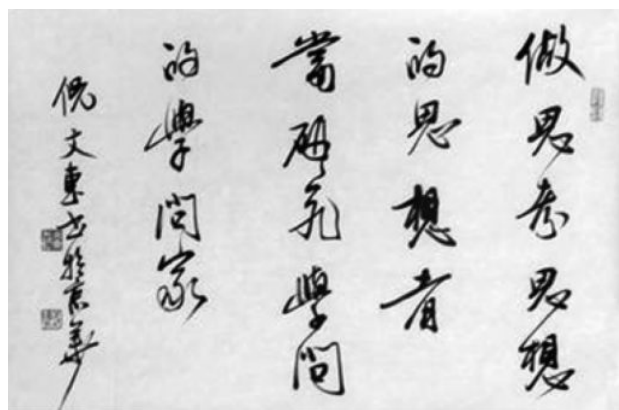 做思考思想
的思想者
當研究學問
的學問家
倪文東書於京華